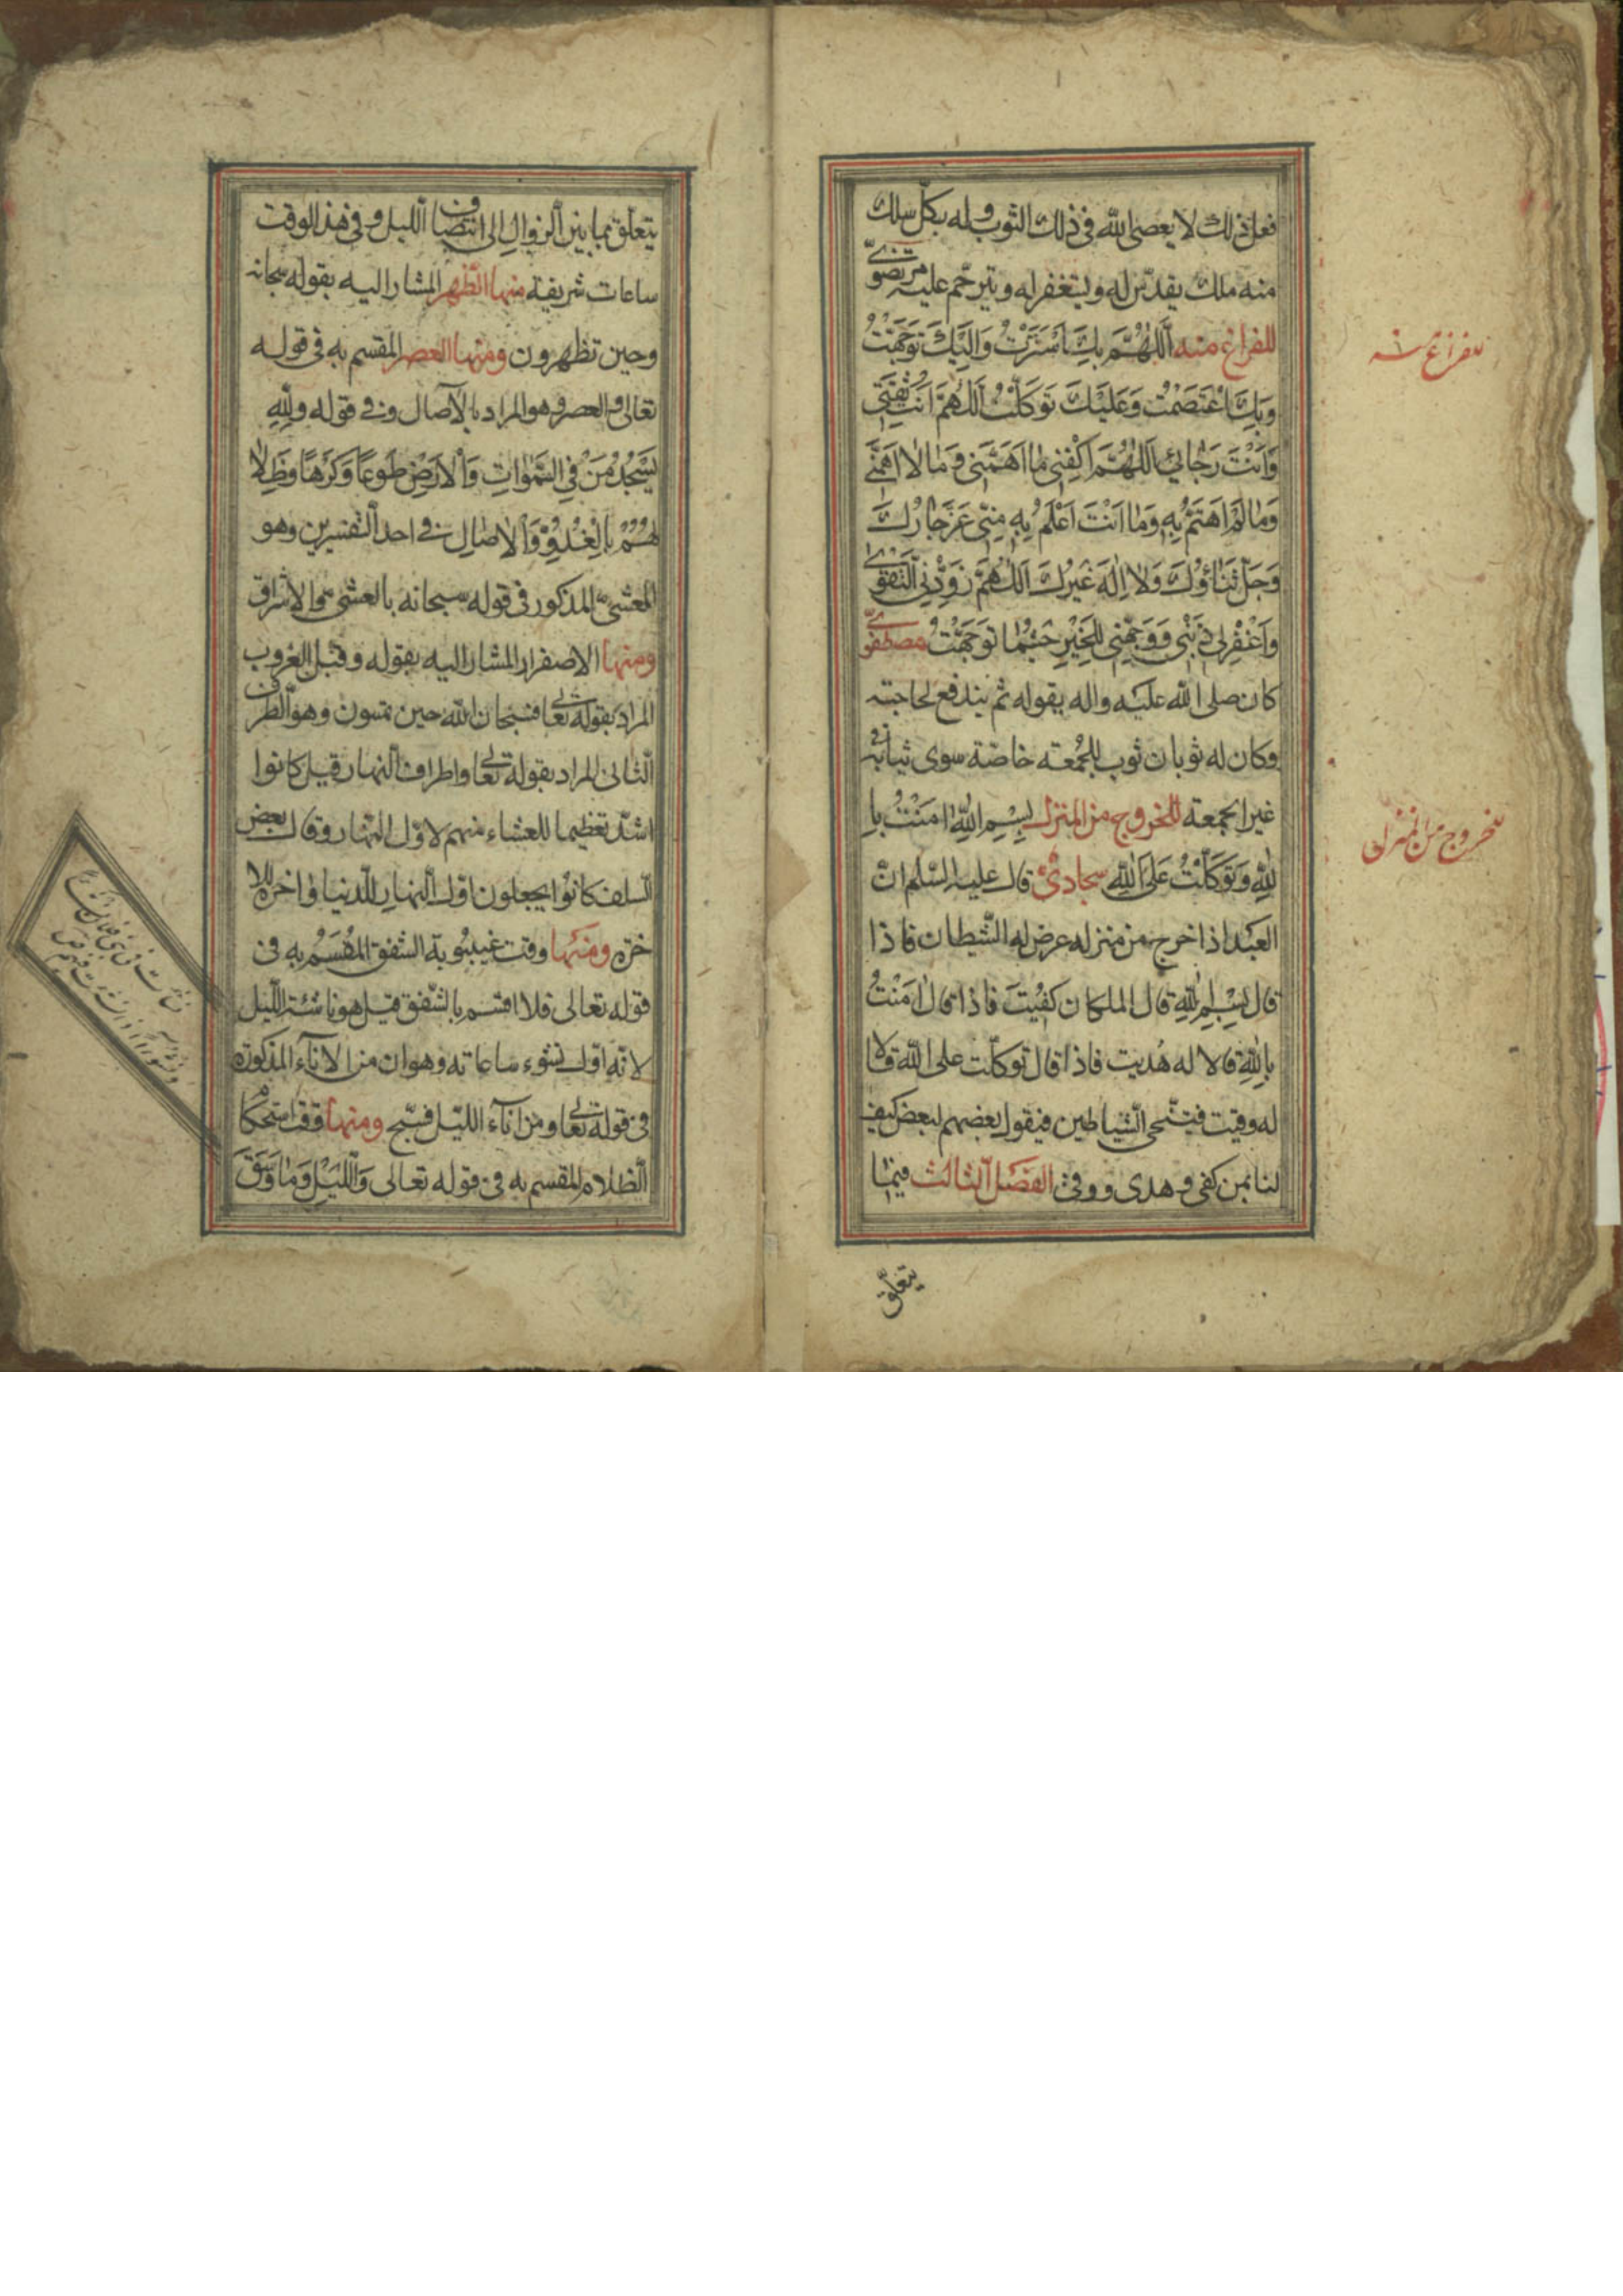 فعل ذلك لا يعصى الله فى ذلك الثوب وله بكل سلك
منه ملك يقدّس له ويستغفر له ويترحّم عليه مرتضوىّ
للفراغ منه اَللّٰهُمَّ بِكَ اسْتَتَرْتُ وَاِلَيْكَ تَوَجَّهْتُ
وَبِكَ اعْتَصَمْتُ وَعَلَيْكَ تَوَكَّلْتُ اَللّٰهُمَّ اَنْتَ ثِقَتِى
وَاَنْتَ رَجٰائِى اَللّٰهُمَّ اكْفِنِى مٰا اَهَمَّنِى وَمٰا لاٰ اَهَمَّنِى
وَمٰا لَمْ اَهْتَمَّ بِهِ وَمٰا اَنْتَ اَعْلَمُ بِهِ مِنِّى عَزَّ جٰارُكَ
وَجَلَّ ثَنٰاؤُكَ وَلاٰ اِلٰهَ غَيْرُكَ اَللّٰهُمَّ زَوِّدْنِى التَّقْوىٰ
وَاغْفِرْ لِى ذَنْبِى وَوَجِّهْنِى لِلْخَيْرِ حَيْثُمٰا تَوَجَّهْتُ مصطفوىّ
كان صلى الله عليه واله يقوله ثم يندفع لحاجته
وكان له ثوبان ثوب للجُمعته خاصّة سوى ثيابه فى
غير الجمعته للخروج من المنزل بِسْمِ اللّٰهِ اٰمَنْتُ بِا
للّٰهِ وَتَوَكَّلْتُ عَلَى اللّٰهِ سجادىّ قال عليه السّلم انّ
العبد اذا خرج من منزله عرض له الشّيطان فاذا
قال بِسْمِ اللّٰهِ قال الملكان كُفِيتَ فاذا قال اٰمَنْتُ
بِاللّٰهِ قالا له هُديت فاذا قال توكّلت على اللّه قالا
له وقيت فيتنحى الشياطين فيقول بعضهم لبعض كيف
لنا بمن كفى وهدى ووقى الفصل الثالث فيما
يتعلّق
للفراغ منه
للخروج من المنزل
يتعلّق بما بين الزوال الى انتصاف الليل وفى هذا الوقت
ساعات شريفة منها الظّهر المشار اليه بقوله سبحانه
وحين تظهرون ومنها العصر المقسم به فى قوله
تعالى والعصر وهو المراد بالآصال فى قوله وَلِلّٰهِ
يَسْجُدُ مَنْ فِى السَّمٰوٰاتِ وَالْاَرْضِ طَوْعًا وَكَرْهًا وَظِلاٰ
لُهُمْ بِالْغُدُوِّ وَالْاٰصٰالِ فى احد التفسيرين وهو
العشىّ المذكور فى قوله سبحانه بالعشى والاشراق
ومنها الاصفرار المشار اليه بقوله وقبل الغروب
المراد بقوله تعالى فسبحان اللّه حين تمسون وهو الطرف
الثانى المراد بقوله تعالى واطراف النهار قيل كانوا
اشدّ تعظيما للعشاء منهم لاوّل النّهار وقال بعض
السلف كانوا يجعلون اول النهار للدنيا واخره للا
خرة ومنها وقت غيبوبة الشفق المُقسَمُ به فى
قوله تعالى فلا اقسم بالشّفق قيل هو ناشئة اللّيل
لانّه اوّل نشوء ساعاته وهو ان من الاناء المذكورة
فى قوله تعالى ومن اناء الليّل فسبّح ومنها وقت استحكام
الظلام المقسم به فى قوله تعالى وَاللَّيْلِ وَمٰا وَسَقَ